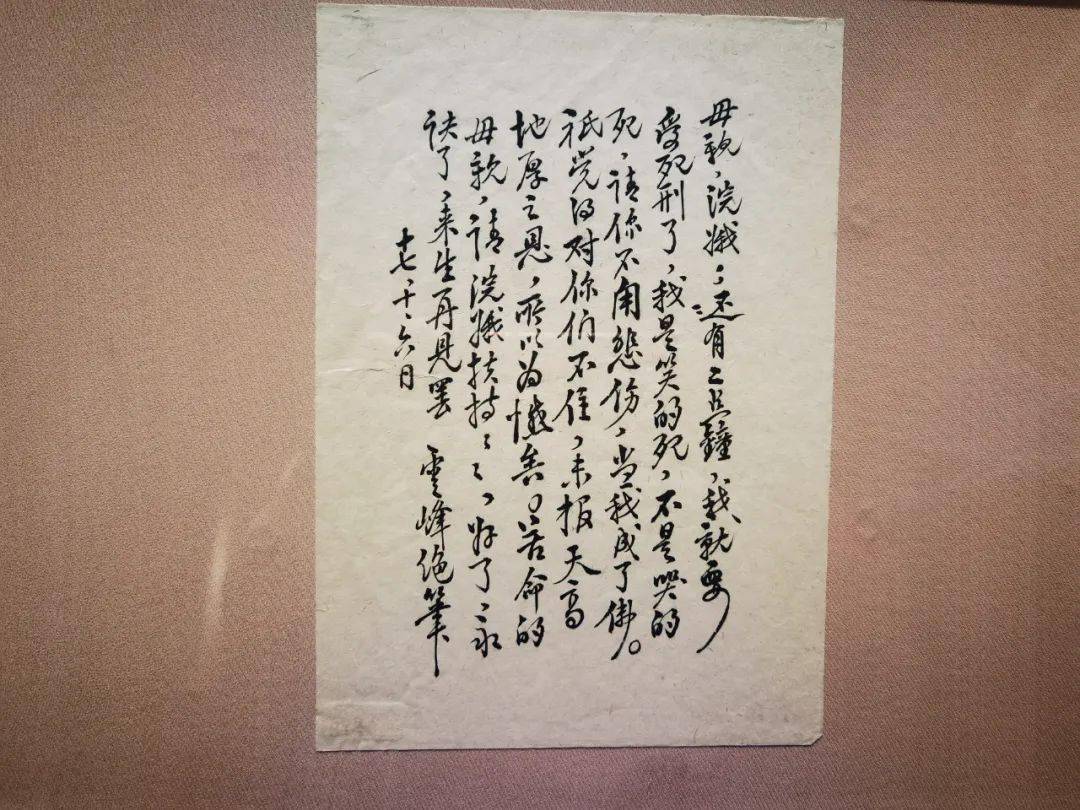 母親，浣娥，还有二点鐘，我就要
受死刑了，我是笑的死，不是哭的
死，请你不用悲伤，当我成了佛。
祇觉得对你们不住，未报天高
地厚之恩，所以为憾矣。苦命的
母親，请浣娥扶持扶持，好了，永
诀了，来生再见罢 雲峰绝筆
十七、十、六日